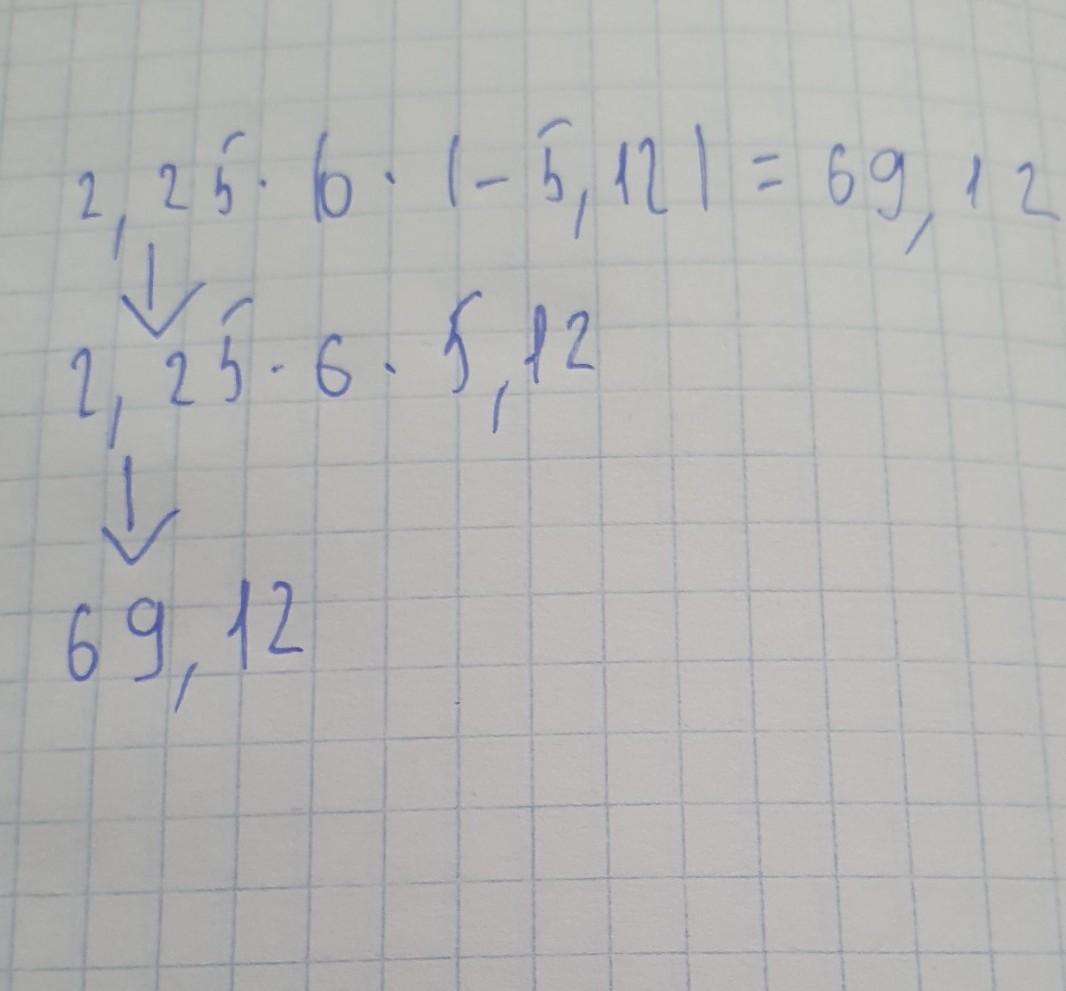 2,25 · 6 · |-5,12| = 69,12
↓
2,25 · 6 · 5,12
↓
69,12